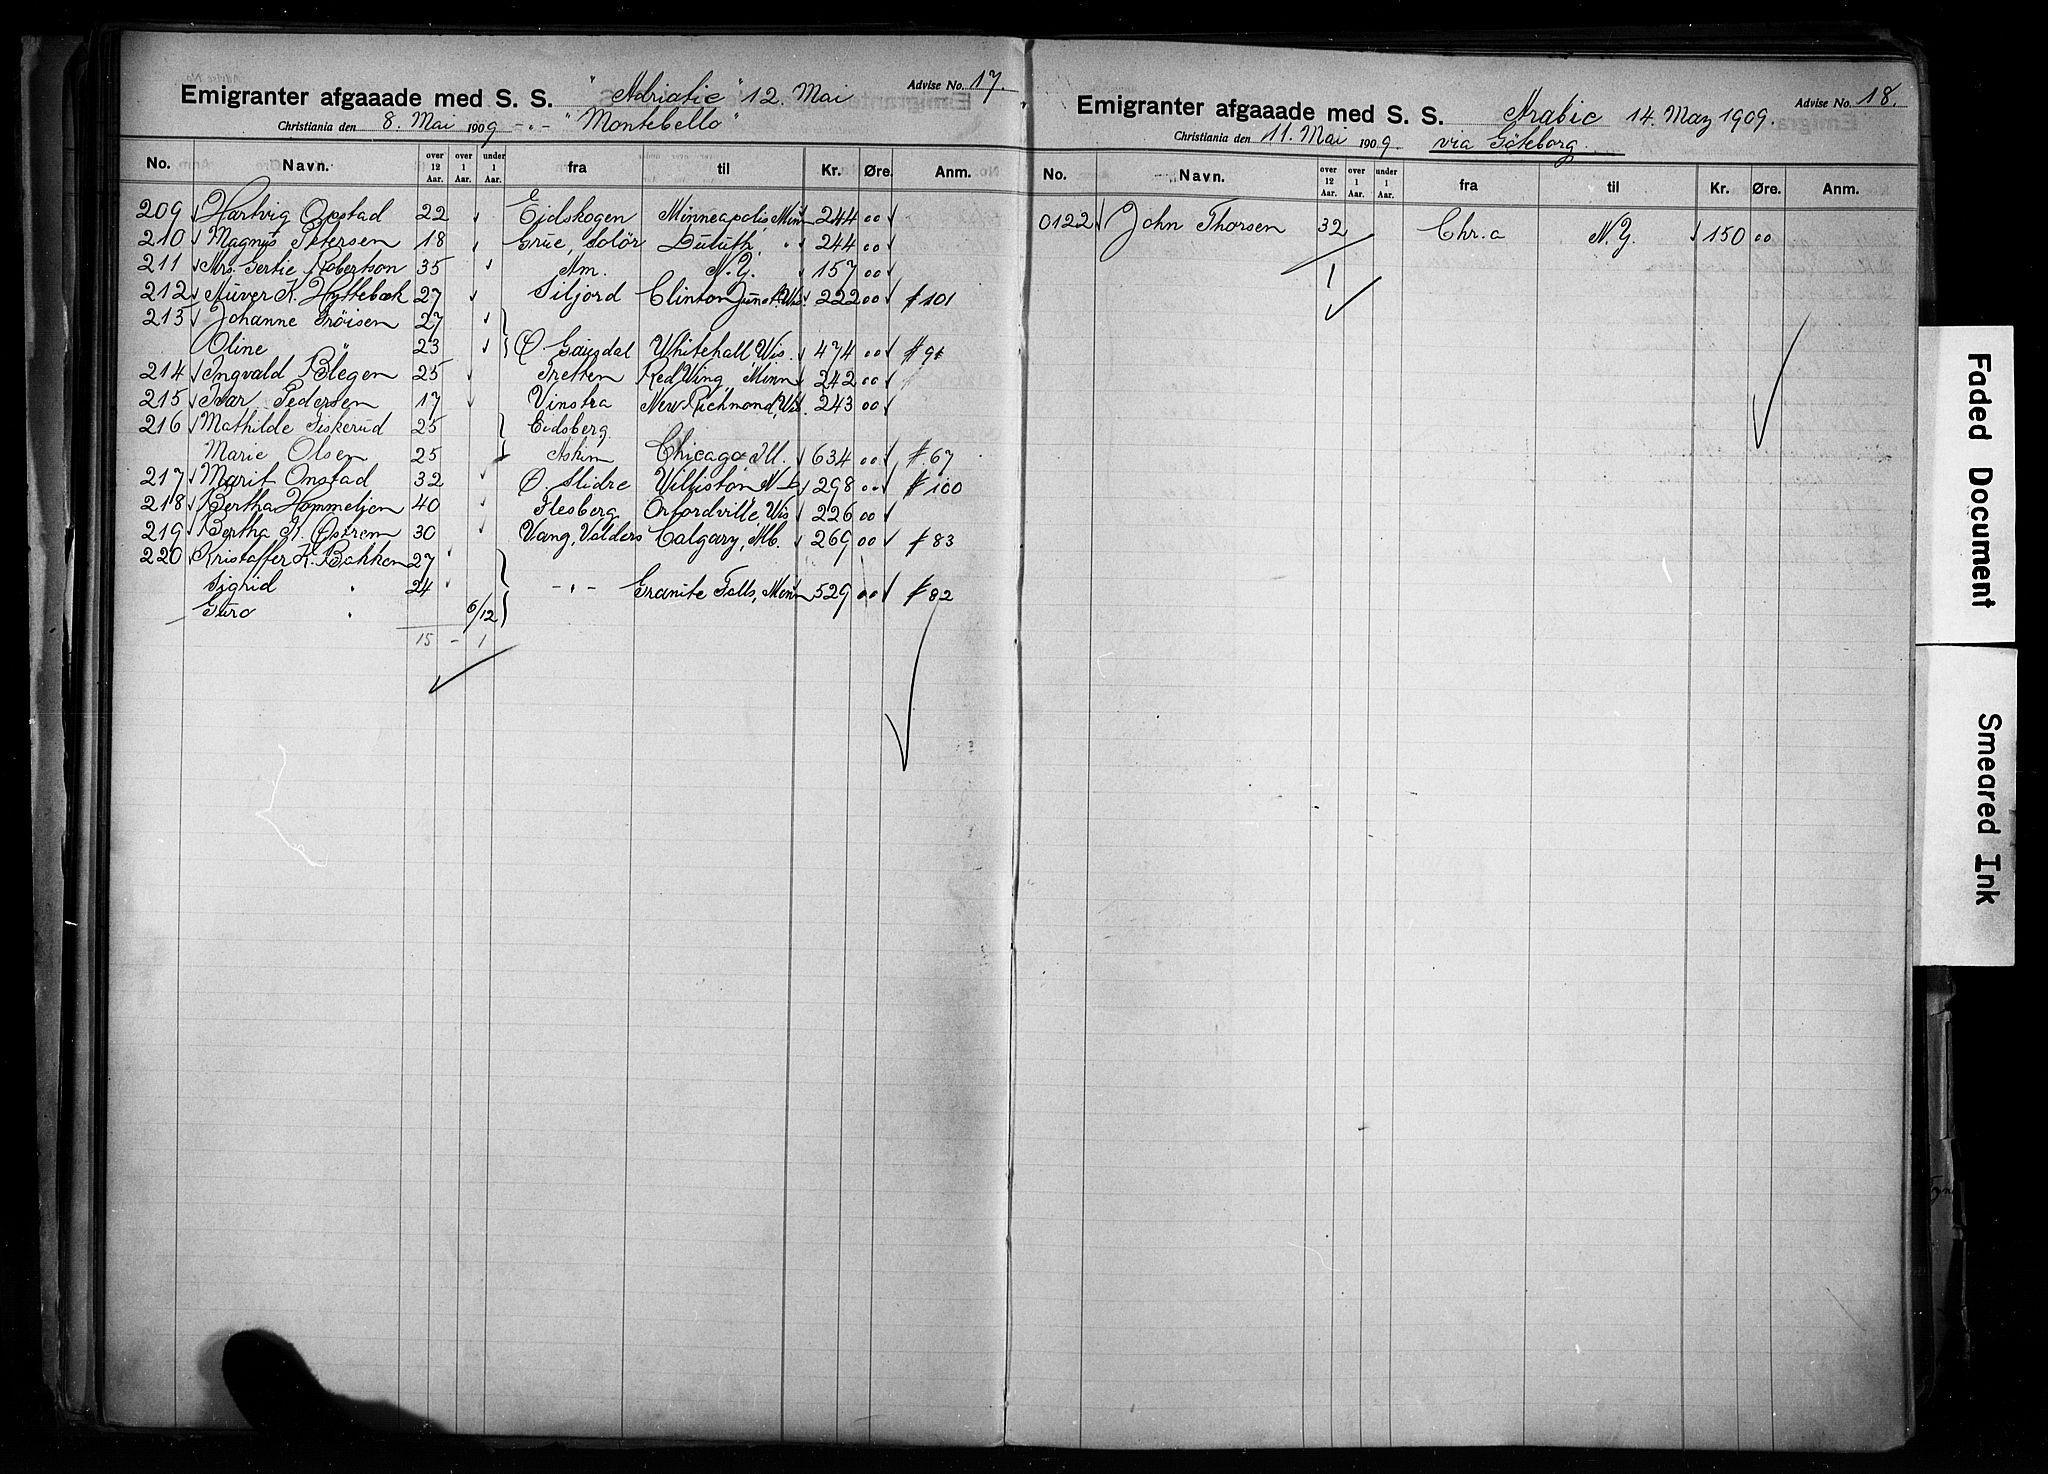 Emigranter afgaaade med S. S. "Adriatic" 12. Mai Advise No. 17.
Christiania den 8. Mai 1909 -"- "Montebello"
No. Navn. over 12 Aar. over 1 Aar. under 1 Aar. fra til Kr. Øre. Anm.
209 Hartvig Opstad 22 Eidskogen Minneapolis, Minn 244 00
210 Magnus Petersen 18 Grue, Solör Duluth, " 244 00
211 Mrs. Gertie Robertson 35 Am. N.Y. 157 00
212 K. Hyttebæk 27 Siljord Clinton Junct. Wis. 222 00 # 101
213 Johanne Tröisen 27
Oline 23 Ø. Gausdal Whitehall Wis. 474 00 # 91
214 Ingvald Blegen 25 Tretten Red Wing, Minn 242 00
215 Ivar Pedersen 17 Vinstra New Richmond, Wis. 243 00
216 Mathilde Fiskerud 25 Eidsberg
Marie Olsen 25 Askim Chicago Ill. 634 00 # 67
217 Marit Onstad 32 Ø. Slidre Williston N D 298 00 # 100
218 Bertha Hammeljen 40 Flesberg Orfordville Wis 226 00
219 Bertha K. Östrem 30 Vang, Valders Calgary, Alb. 269 00 # 83
220 Kristoffer K. Bakken 27
Sigrid " 24 -"- Granite Falls, Minn 529 00 # 82
Guro " 6/12
15 - 1
Emigranter afgaaade med S. S. Arabic 14. May 1909. Advise No. 18.
Christiania den 11. Mai 1909 via Göteborg.
No. Navn. over 12 Aar. over 1 Aar. under 1 Aar. fra til Kr. Øre. Anm.
0122 John Thorsen 32 Chr.a N.Y. 150 00
1
Faded Document
Smeared Ink